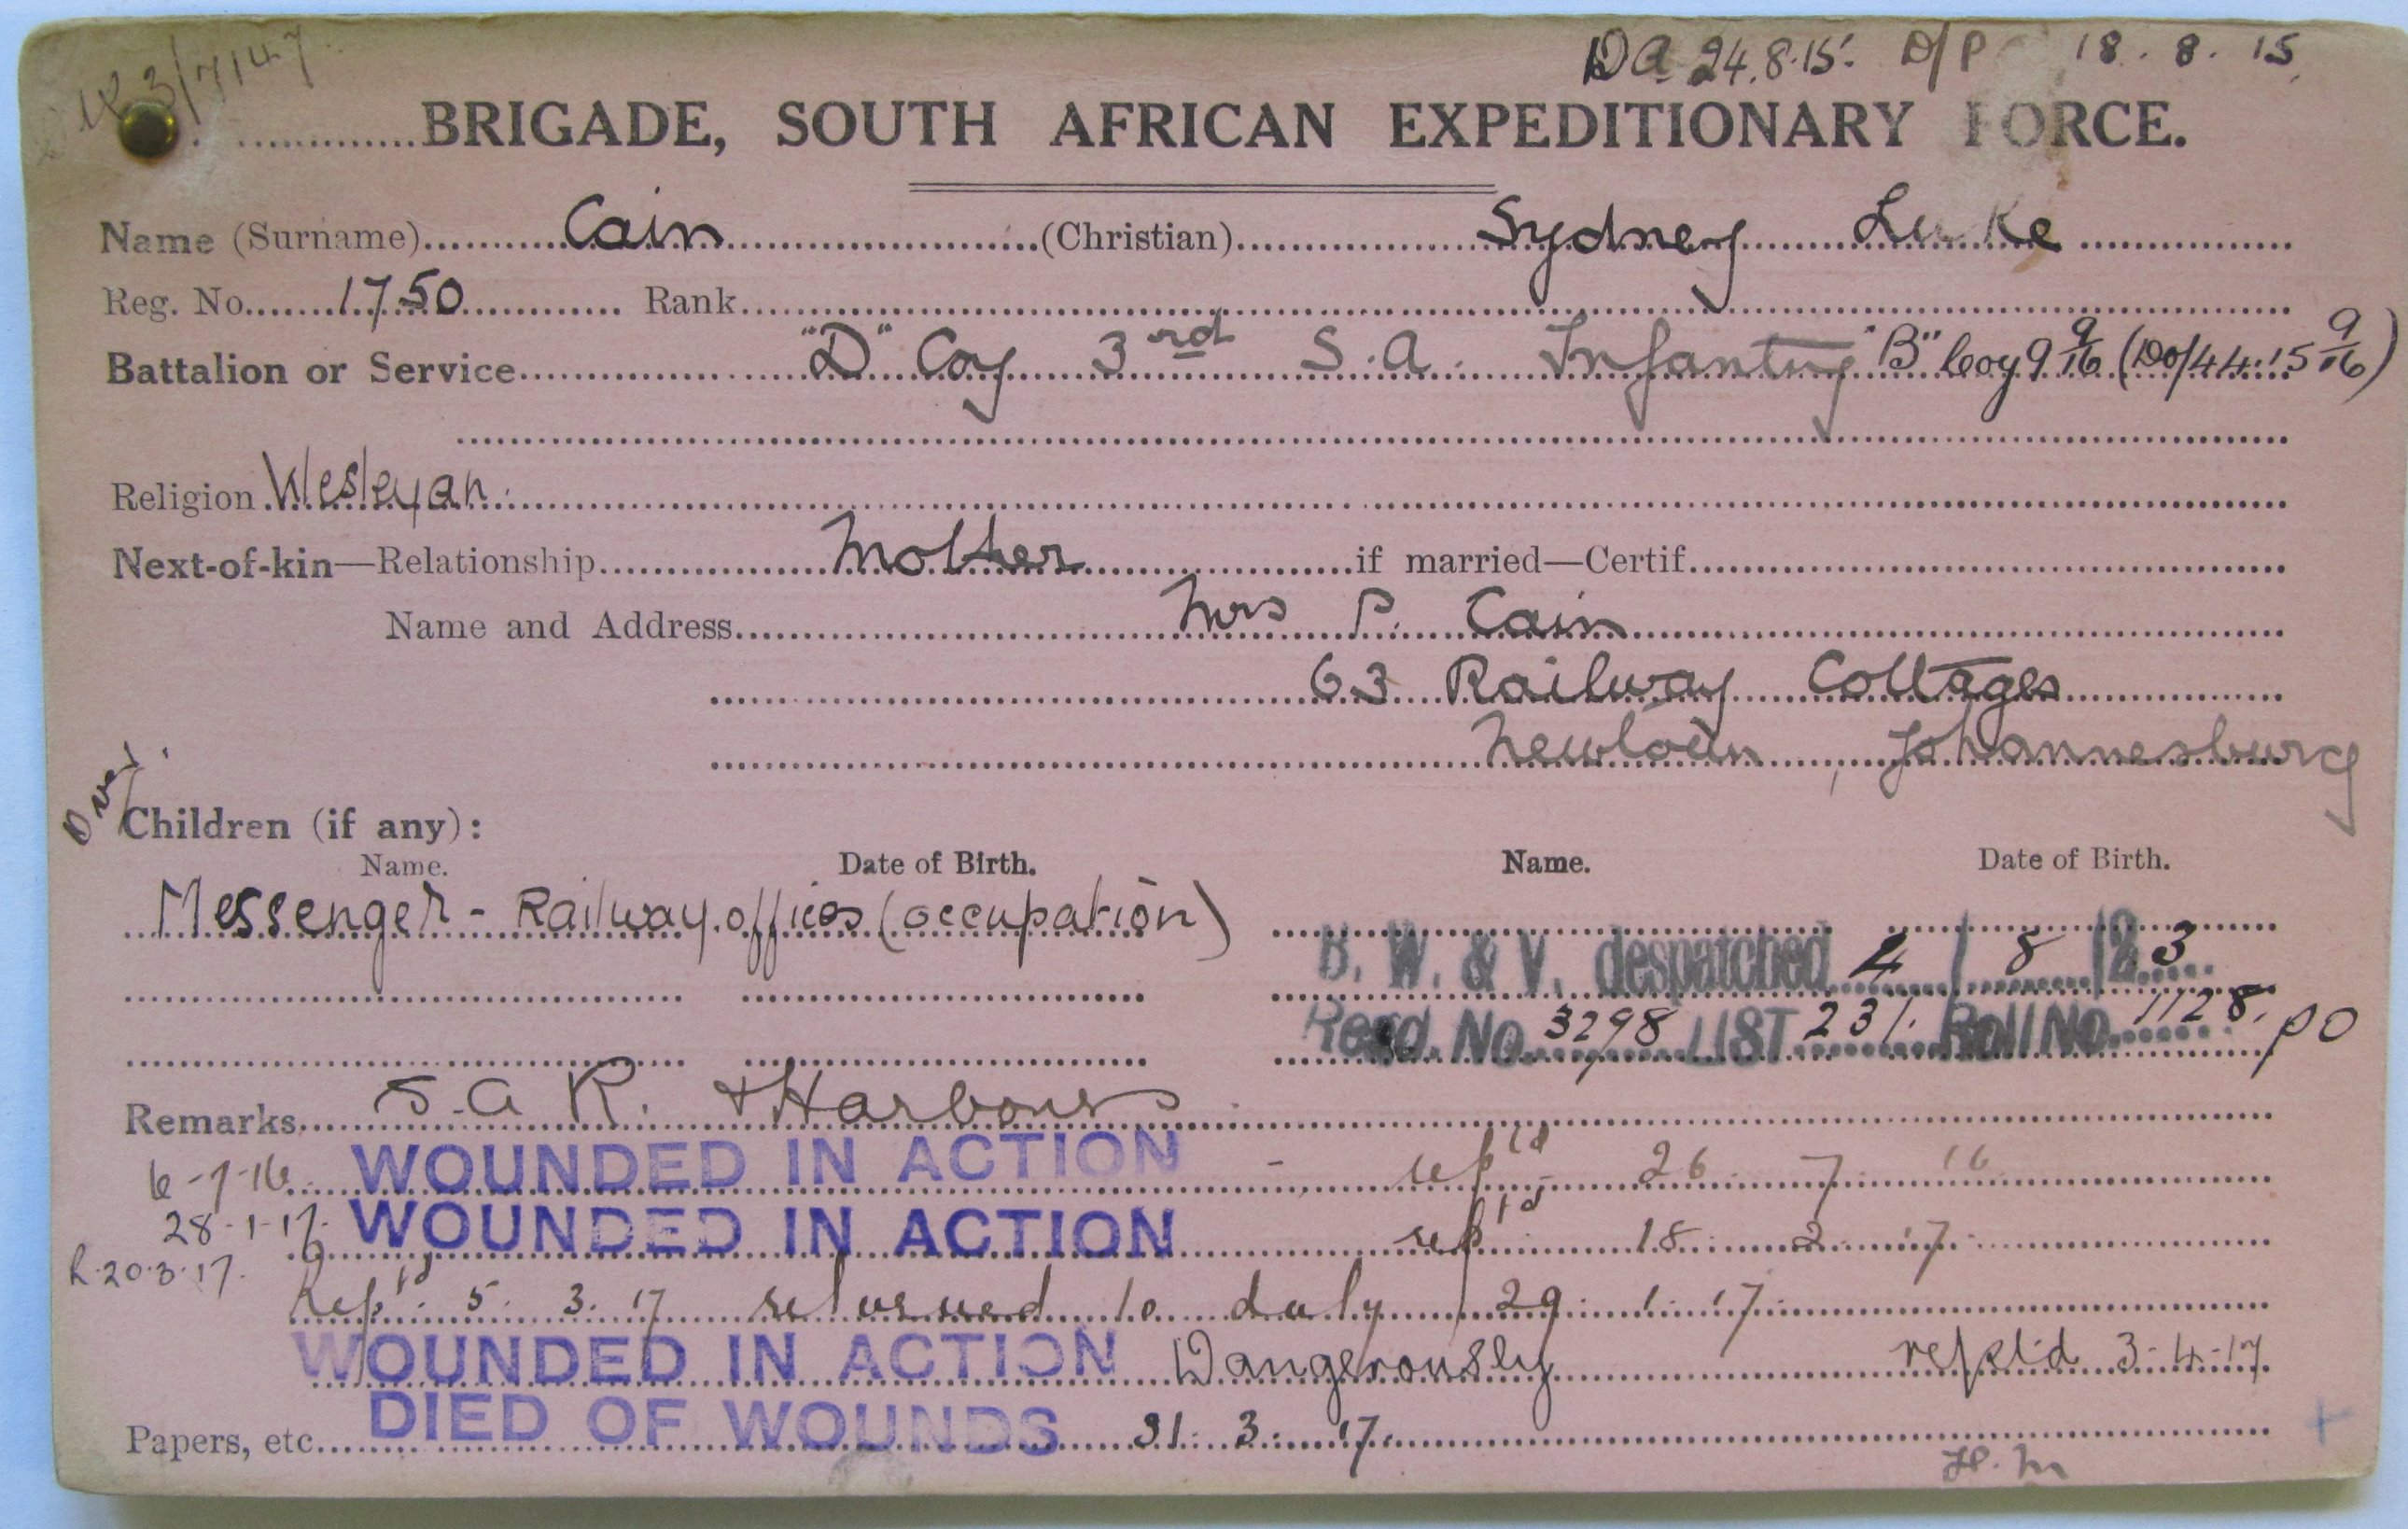 3/7147
DA 24.8.15. D/P 18.8.15
BRIGADE, SOUTH AFRICAN EXPEDITIONARY FORCE.
Name (Surname) Cain (Christian) Sydney Luke
Reg. No. 1750 Rank
Battalion or Service "D" Coy 3rd S.A. Infantry "B" Coy 9 9/16 (DO/44.15 9/16)
Religion Wesleyan.
Next-of-kin—Relationship Mother if married—Certif.
Name and Address Mrs P. Cain
63 Railway Cottages
Newtown, Johannesburg
Over.
Children (if any):
Name. Date of Birth. Name. Date of Birth.
Messenger - Railway offices (occupation)
B. W. & V. despatched 4/8/23
Regd. No. 3298 LIST 231. Roll No. 1128. PO
Remarks S.A R. & Harbours
6-7-16 WOUNDED IN ACTION - rep'td 26 7 16
28-1-17 WOUNDED IN ACTION rep'td 18 2 17
R.20.3.17. Rep'td 5. 3. 17 returned to duty 29 1 17
WOUNDED IN ACTION Dangerously reptd 3-4-17
Papers, etc. DIED OF WOUNDS 31. 3. 17.
H.M